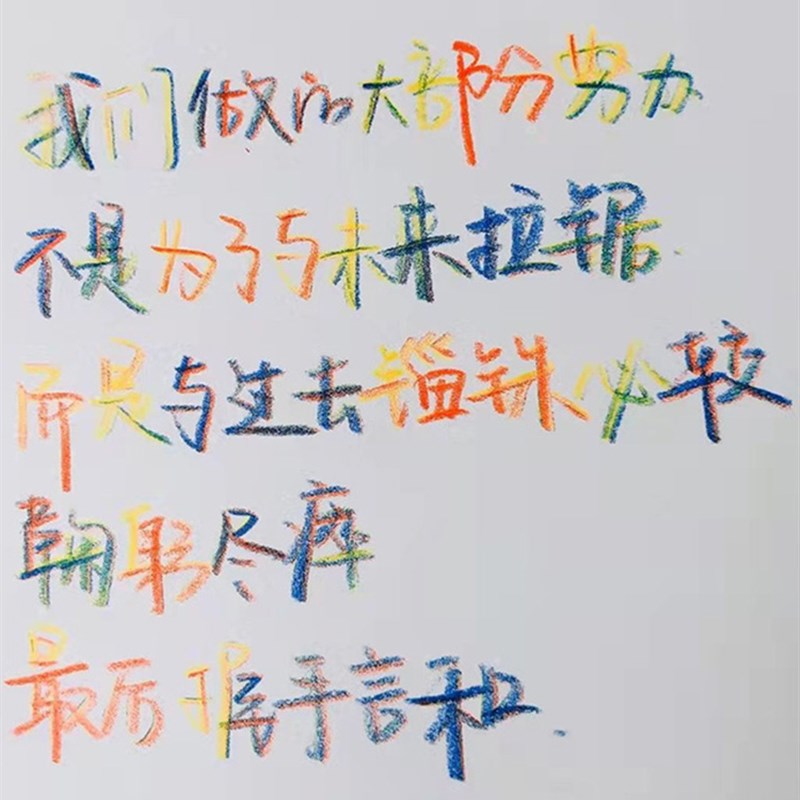 我们做的大部份努力
不是为了与未来拉锯
而是与过去锱铢必较
鞠躬尽瘁
最后握手言和.